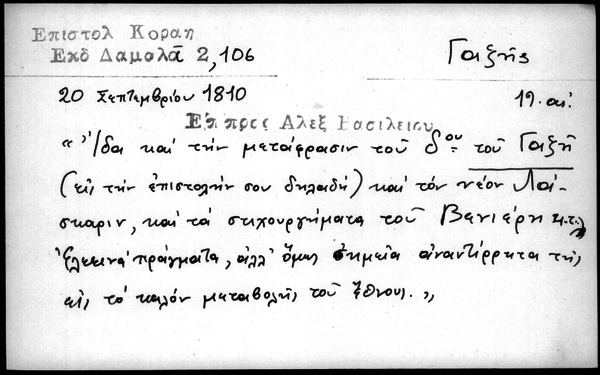 Επιστολ Κοραη
Γαζῆς
Εκδ Δαμαλᾶ 2, 106
20 Σεπτεμβρίου 1810
19. αἰ.
Επ προς Αλεξ Βασιλειου
« Ἴδα καὶ τὴν μετάφρασιν τοῦ δου τοῦ Γαζῆ
(εἰς τὴν ἐπιστολήν σου δηλαδή) καὶ τὸν νέον Λά-
σκαριν, καὶ τὰ στιχουργήματα τοῦ Βενιέρη κ.τ.λ.
Ἐλεεινὰ πράγματα, ἀλλ' ὅμως σημεῖα ἀναντίρρητα τῆς
εἰς τὸ καλὸν μεταβολῆς τοῦ ἔθνους. »